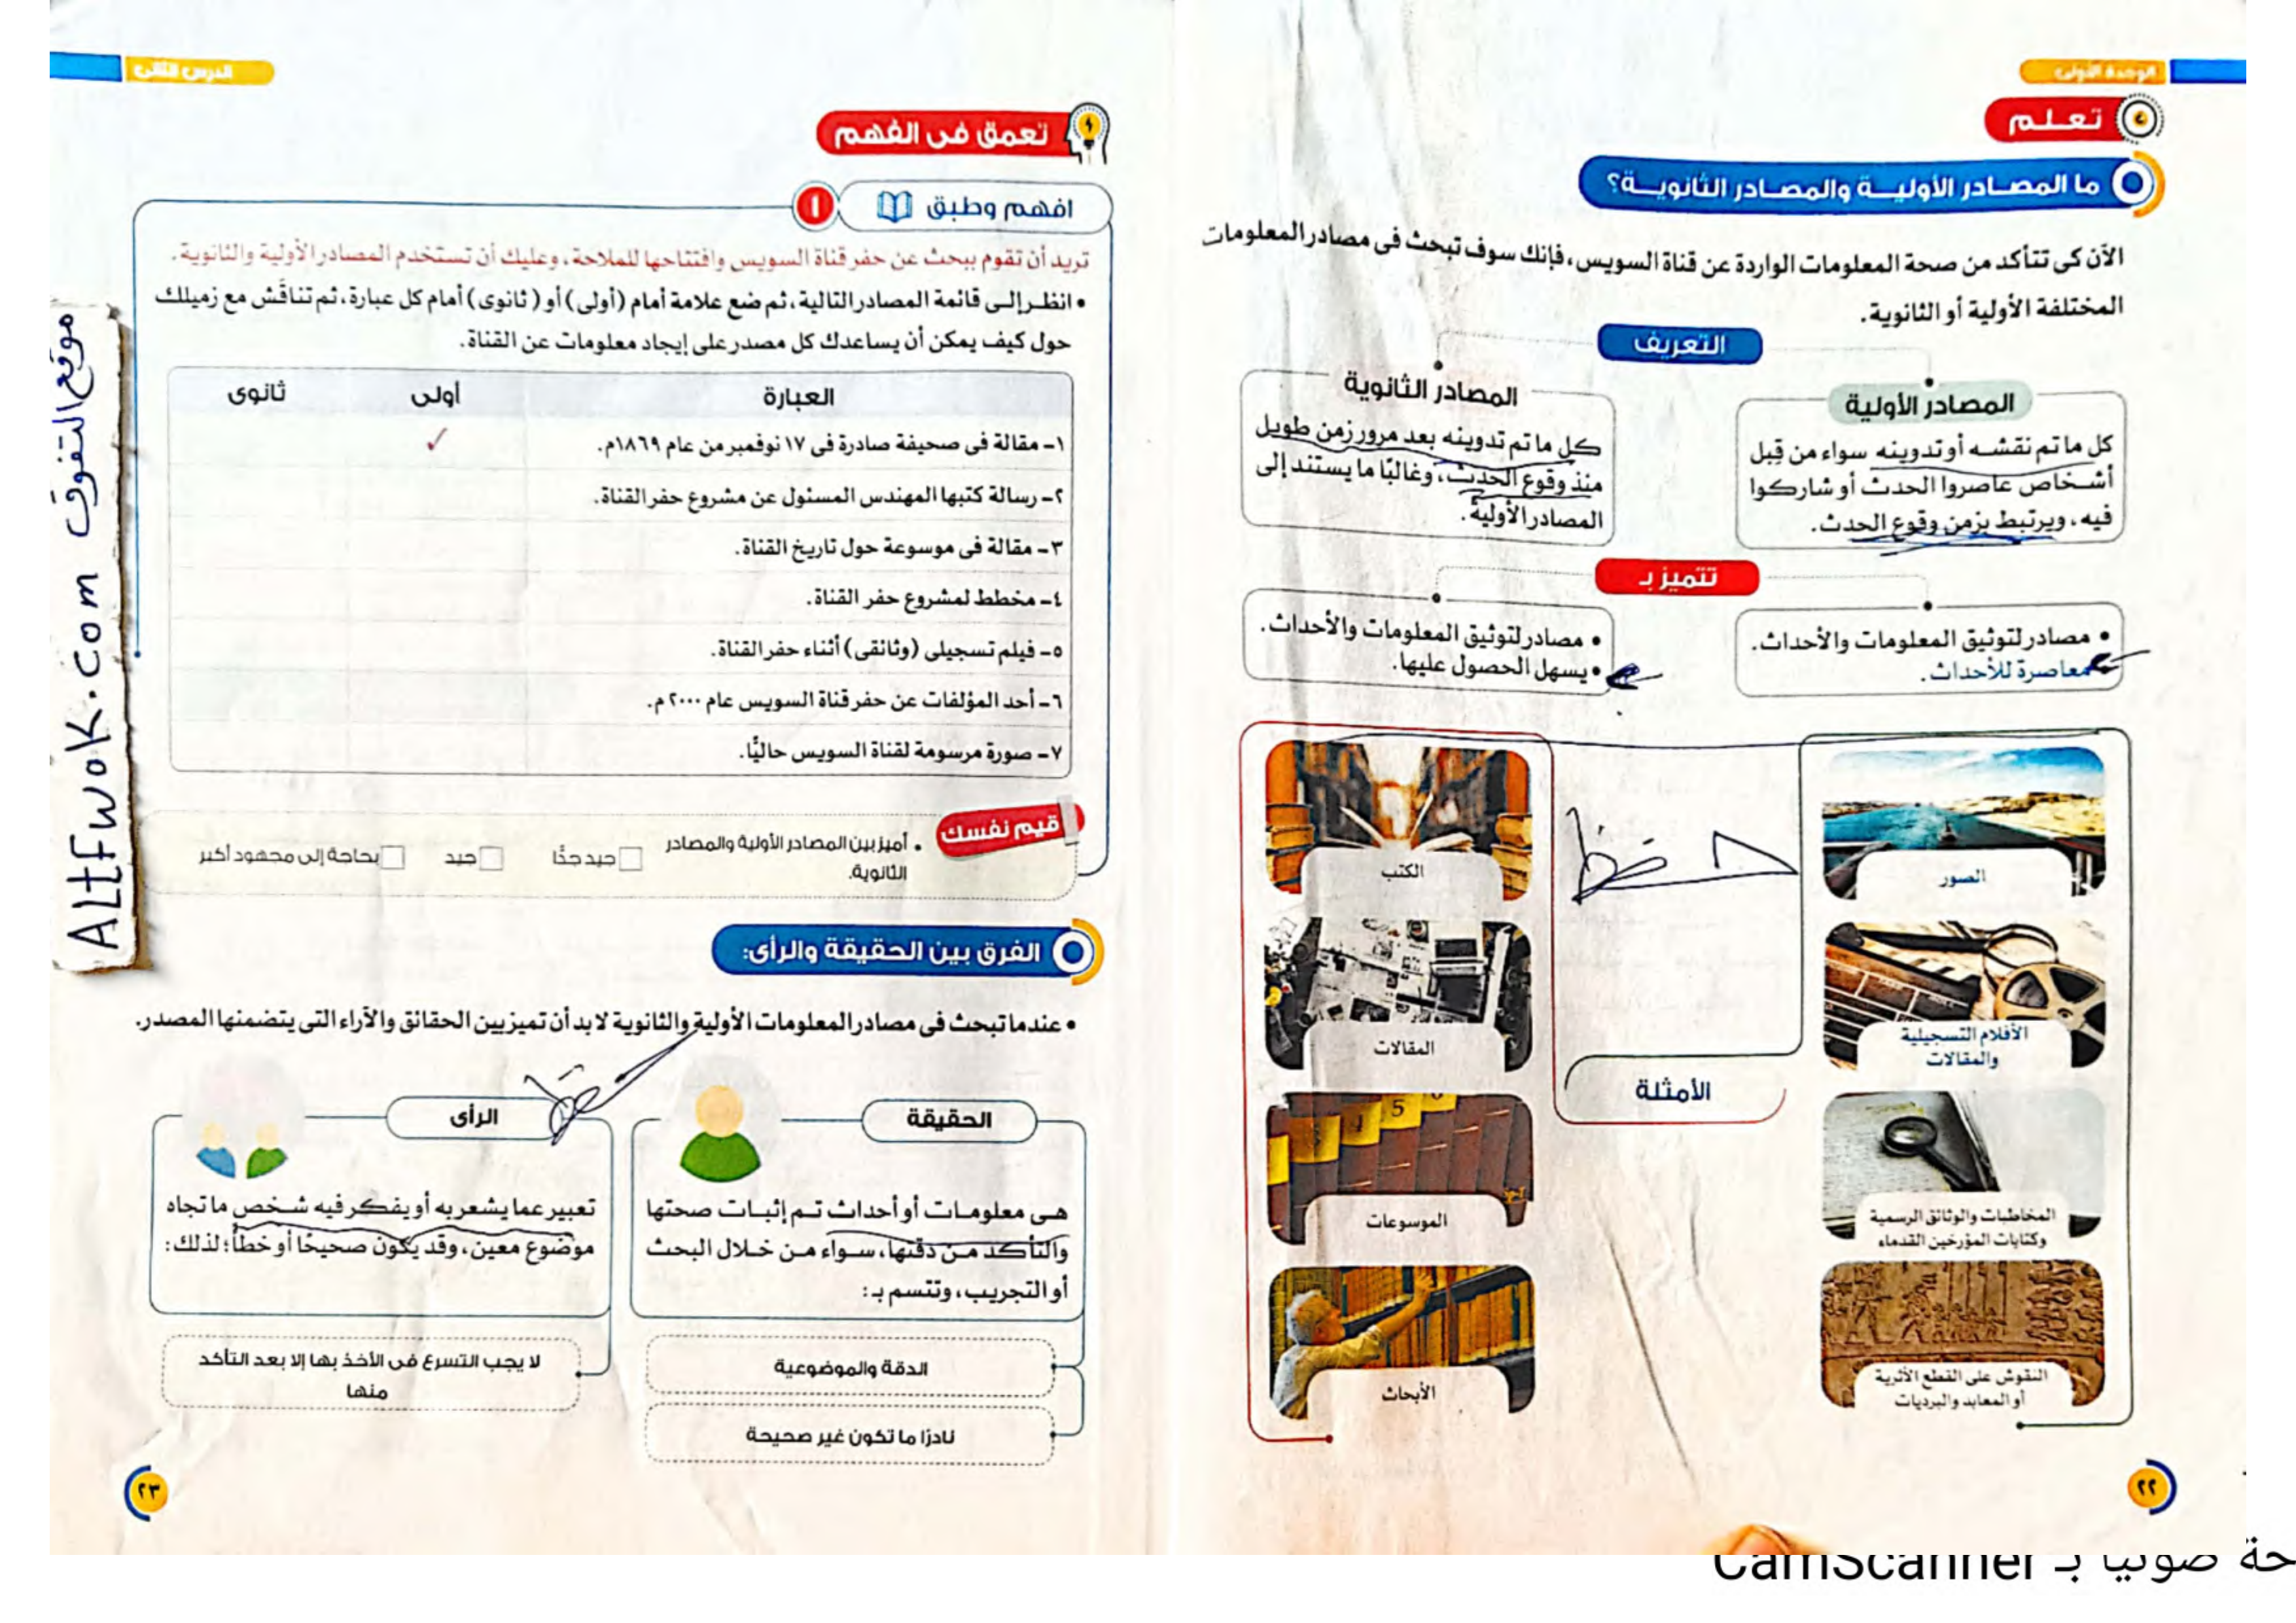 الوحدة الأولى
تعلم
ما المصادر الأولية والمصادر الثانوية؟
الآن كى تتأكد من صحة المعلومات الواردة عن قناة السويس، فإنك سوف تبحث فى مصادر المعلومات
المختلفة الأولية أو الثانوية.
التعريف
المصادر الأولية
كل ما تم نقشه أو تدوينه سواء من قبل
أشخاص عاصروا الحدث أو شاركوا
فيه، ويرتبط بزمن وقوع الحدث.
المصادر الثانوية
كل ما تم تدوينه بعد مرور زمن طويل
منذ وقوع الحدث، وغالبًا ما يستند إلى
المصادر الأولية.
تتميز بـ
• مصادر لتوثيق المعلومات والأحداث.
معاصرة للأحداث.
• مصادر لتوثيق المعلومات والأحداث.
• يسهل الحصول عليها.
الصور
الأفلام التسجيلية
والمقالات
المخاطبات والوثائق الرسمية
وكتابات المؤرخين القدماء
النقوش على القطع الأثرية
أو المعابد والبرديات
حفظ
الأمثلة
الكتب
المقالات
الموسوعات
الأبحاث
٢٢
الدرس الثانى
تعمق فى الفهم
افهم وطبق
١
تريد أن تقوم ببحث عن حفر قناة السويس وافتتاحها للملاحة، وعليك أن تستخدم المصادر الأولية والثانوية.
• انظر إلى قائمة المصادر التالية، ثم ضع علامة أمام (أولى) أو (ثانوى) أمام كل عبارة، ثم تناقش مع زميلك
حول كيف يمكن أن يساعدك كل مصدر على إيجاد معلومات عن القناة.
العبارة أولى ثانوى
١- مقالة فى صحيفة صادرة فى ١٧ نوفمبر من عام ١٨٦٩م. ✓
٢- رسالة كتبها المهندس المسئول عن مشروع حفر القناة.
٣- مقالة فى موسوعة حول تاريخ القناة.
٤- مخطط لمشروع حفر القناة.
٥- فيلم تسجيلى (وثائقى) أثناء حفر القناة.
٦- أحد المؤلفات عن حفر قناة السويس عام ٢٠٠٠م.
٧- صورة مرسومة لقناة السويس حاليًّا.
قيم نفسك
• أميز بين المصادر الأولية والمصادر
الثانوية.
جيد جدًّا جيد بحاجة إلى مجهود أكبر
الفرق بين الحقيقة والرأى:
• عندما تبحث فى مصادر المعلومات الأولية والثانوية لا بد أن تميز بين الحقائق والآراء التى يتضمنها المصدر.
الحقيقة
هى معلومات أو أحداث تم إثبات صحتها
والتأكد من دقتها، سواء من خلال البحث
أو التجريب، وتتسم بـ:
الدقة والموضوعية
نادرًا ما تكون غير صحيحة
الرأى
تعبير عما يشعر به أو يفكر فيه شخص ما تجاه
موضوع معين، وقد يكون صحيحًا أو خطأً؛ لذلك:
لا يجب التسرع فى الأخذ بها إلا بعد التأكد
منها
٢٣
موقع التفوق ALtFwoK.com
حة ضوئيا بـ CamScanner